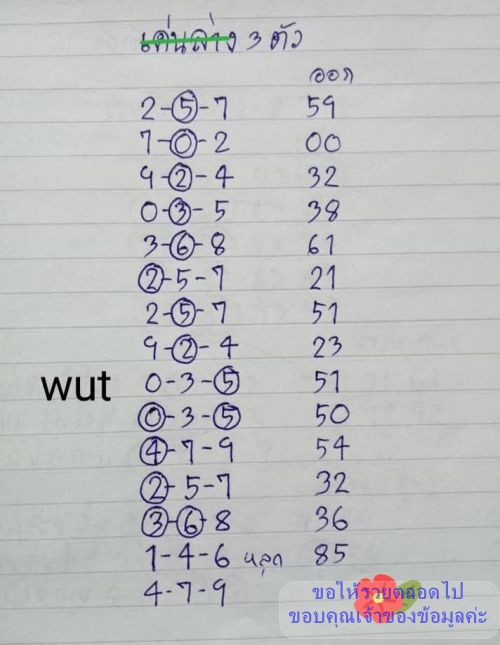 เด่นล่าง 3 ตัว
ออก
2-5-7 59
7-0-2 00
9-2-4 32
0-3-5 38
3-6-8 61
2-5-7 21
2-5-7 51
9-2-4 23
wut 0-3-5 51
0-3-5 50
4-7-9 54
2-5-7 32
3-6-8 36
1-4-6 หลุด 85
4-7-9
ขอให้รวยตลอดไป
ขอบคุณเจ้าของข้อมูลค่ะ